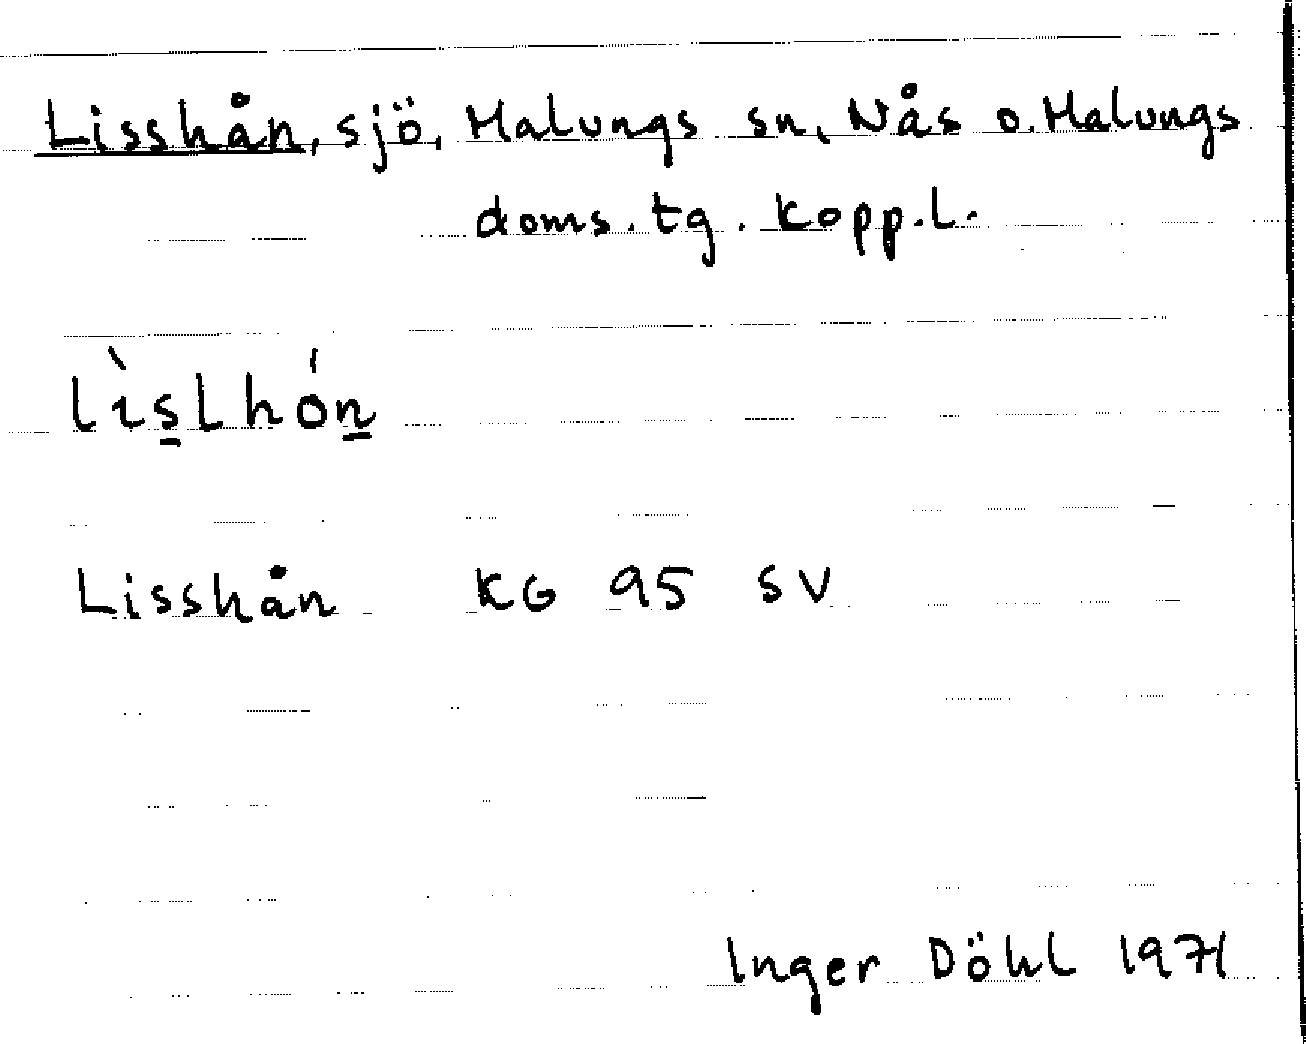 Lisshån, sjö, Malungs sn, Nås o. Malungs
doms. tg. Kopp. l.
lìs̠lhón̠
Lisshån KG 95 SV
Inger Döhl 1971